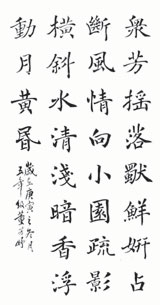 衆芳摇落獸鮮妍占
斷風情向小園疏影
橫斜水清淺暗香浮
動月黄昏
歲在庚寅之冬月
五年级